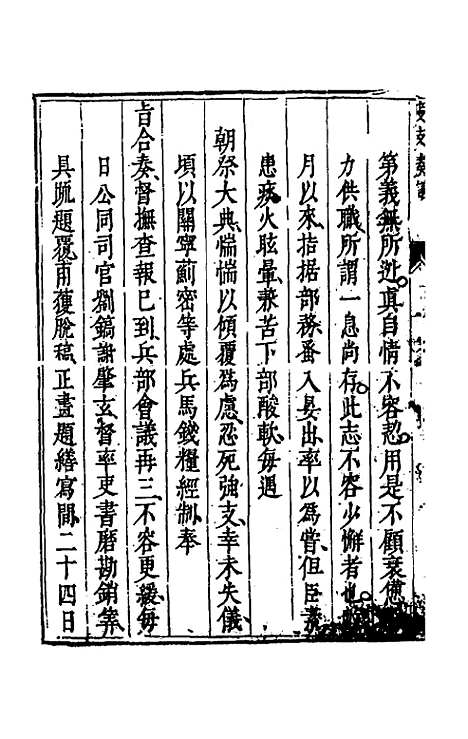 第義無所逃真自情不容恝用是不顧衰憊
力供職所謂一息尚存此志不容少懈者也
月以來拮据部務番入晏出率以為嘗但臣素
患痰火眩暈兼苦下部酸軟每遇
朝祭大典惴惴以傾覆為慮忍死強支幸未失儀
頃以關寧薊密等處兵馬錢糧經制奉
旨合奏督撫查報已到兵部會議再三不容更緩每
日公同司官劉鎬謝肇玄督率吏書磨勘銷筭
具疏題覆甫獲脫稿正畫題繕寫間二十四日